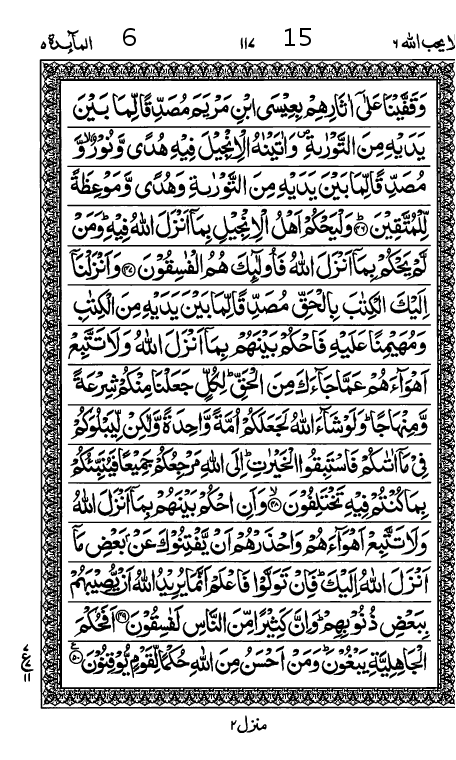 لا یحب الله ٦ 15 ١١٧ 6 المآئدة ٥
وَقَفَّيْنَا عَلٰٓى اٰثَارِهِمْ بِعِيْسَى ابْنِ مَرْيَمَ مُصَدِّقًا لِّمَا بَيْنَ
يَدَيْهِ مِنَ التَّوْرٰىةِ ۪ وَاٰتَيْنٰهُ الْاِنْجِيْلَ فِيْهِ هُدًى وَّنُوْرٌ ۙ وَّ
مُصَدِّقًا لِّمَا بَيْنَ يَدَيْهِ مِنَ التَّوْرٰىةِ وَهُدًى وَّمَوْعِظَةً
لِّلْمُتَّقِيْنَ ؕ۴۶ وَلْيَحْكُمْ اَهْلُ الْاِنْجِيْلِ بِمَاۤ اَنْزَلَ اللّٰهُ فِيْهِ ؕ وَمَنْ
لَّمْ يَحْكُمْ بِمَاۤ اَنْزَلَ اللّٰهُ فَاُولٰٓئِكَ هُمُ الْفٰسِقُوْنَ ۴۷ وَاَنْزَلْنَاۤ
اِلَيْكَ الْكِتٰبَ بِالْحَقِّ مُصَدِّقًا لِّمَا بَيْنَ يَدَيْهِ مِنَ الْكِتٰبِ
وَمُهَيْمِنًا عَلَيْهِ فَاحْكُمْ بَيْنَهُمْ بِمَاۤ اَنْزَلَ اللّٰهُ وَلَا تَتَّبِعْ
اَهْوَآءَهُمْ عَمَّا جَآءَكَ مِنَ الْحَقِّ ؕ لِكُلٍّ جَعَلْنَا مِنْكُمْ شِرْعَةً
وَّمِنْهَاجًا ؕ وَلَوْ شَآءَ اللّٰهُ لَجَعَلَكُمْ اُمَّةً وَّاحِدَةً وَّلٰكِنْ لِّيَبْلُوَكُمْ
فِيْ مَاۤ اٰتٰىكُمْ فَاسْتَبِقُوا الْخَيْرٰتِ ؕ اِلَى اللّٰهِ مَرْجِعُكُمْ جَمِيْعًا فَيُنَبِّئُكُمْ
بِمَا كُنْتُمْ فِيْهِ تَخْتَلِفُوْنَ ۙ۴۸ وَاَنِ احْكُمْ بَيْنَهُمْ بِمَاۤ اَنْزَلَ اللّٰهُ
وَلَا تَتَّبِعْ اَهْوَآءَهُمْ وَاحْذَرْهُمْ اَنْ يَّفْتِنُوْكَ عَنْۢ بَعْضِ مَاۤ
اَنْزَلَ اللّٰهُ اِلَيْكَ ؕ فَاِنْ تَوَلَّوْا فَاعْلَمْ اَنَّمَا يُرِيْدُ اللّٰهُ اَنْ يُّصِيْبَهُمْ
بِبَعْضِ ذُنُوْبِهِمْ ؕ وَاِنَّ كَثِيْرًا مِّنَ النَّاسِ لَفٰسِقُوْنَ ۴۹ اَفَحُكْمَ
الْجَاهِلِيَّةِ يَبْغُوْنَ ؕ وَمَنْ اَحْسَنُ مِنَ اللّٰهِ حُكْمًا لِّقَوْمٍ يُّوْقِنُوْنَ ۵۰
٧
ع
١١
منزل ٢